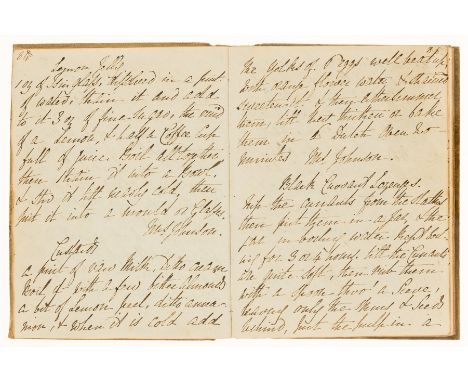 Lemon Jelly
1 oz of Isinglass dissolved in a pint
of water, strain it and add
to it 3 oz of fine Sugar, the rind
of a Lemon, & half a Coffee Cup
full of juice. Boil all together
then strain it into a Bowl,
& stir it till nearly cold, then
put it into a mould or Glasses
Mrs Johnson.
Custards
a pint of new milk, Do cream
boil it with a few bitter almonds
a bit of Lemon peel, ditto cinna-
mon, & when it is cold add
the yolks of 8 Eggs well beat up
with orange flower water & strained
them, till they thicken or bake
them in a Dutch Oven 20
minutes Mrs Johnson.
Black Currant Lozenges.
the currants from the Stalks
then put them in a jar, & the
jar in boiling water, keep boi-
ling for 3 or 4 hours, till the Currants
are quite soft, then rub them
with a spoon thro' a Sieve,
leaving only the skins & seeds
behind, put the pulp in a